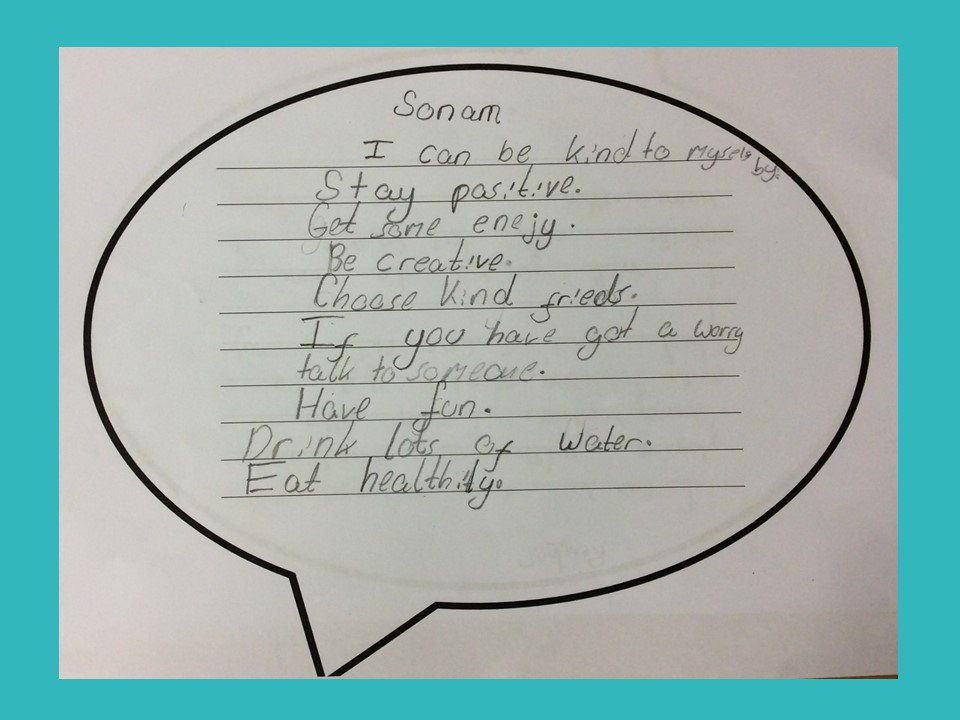 Sonam
I can be kind to myself by:
Stay positive.
Get some enejy.
Be creative.
Choose kind frieds.
If you have got a worry
talk to someone.
Have fun.
Drink lots of water.
Eat healthity.